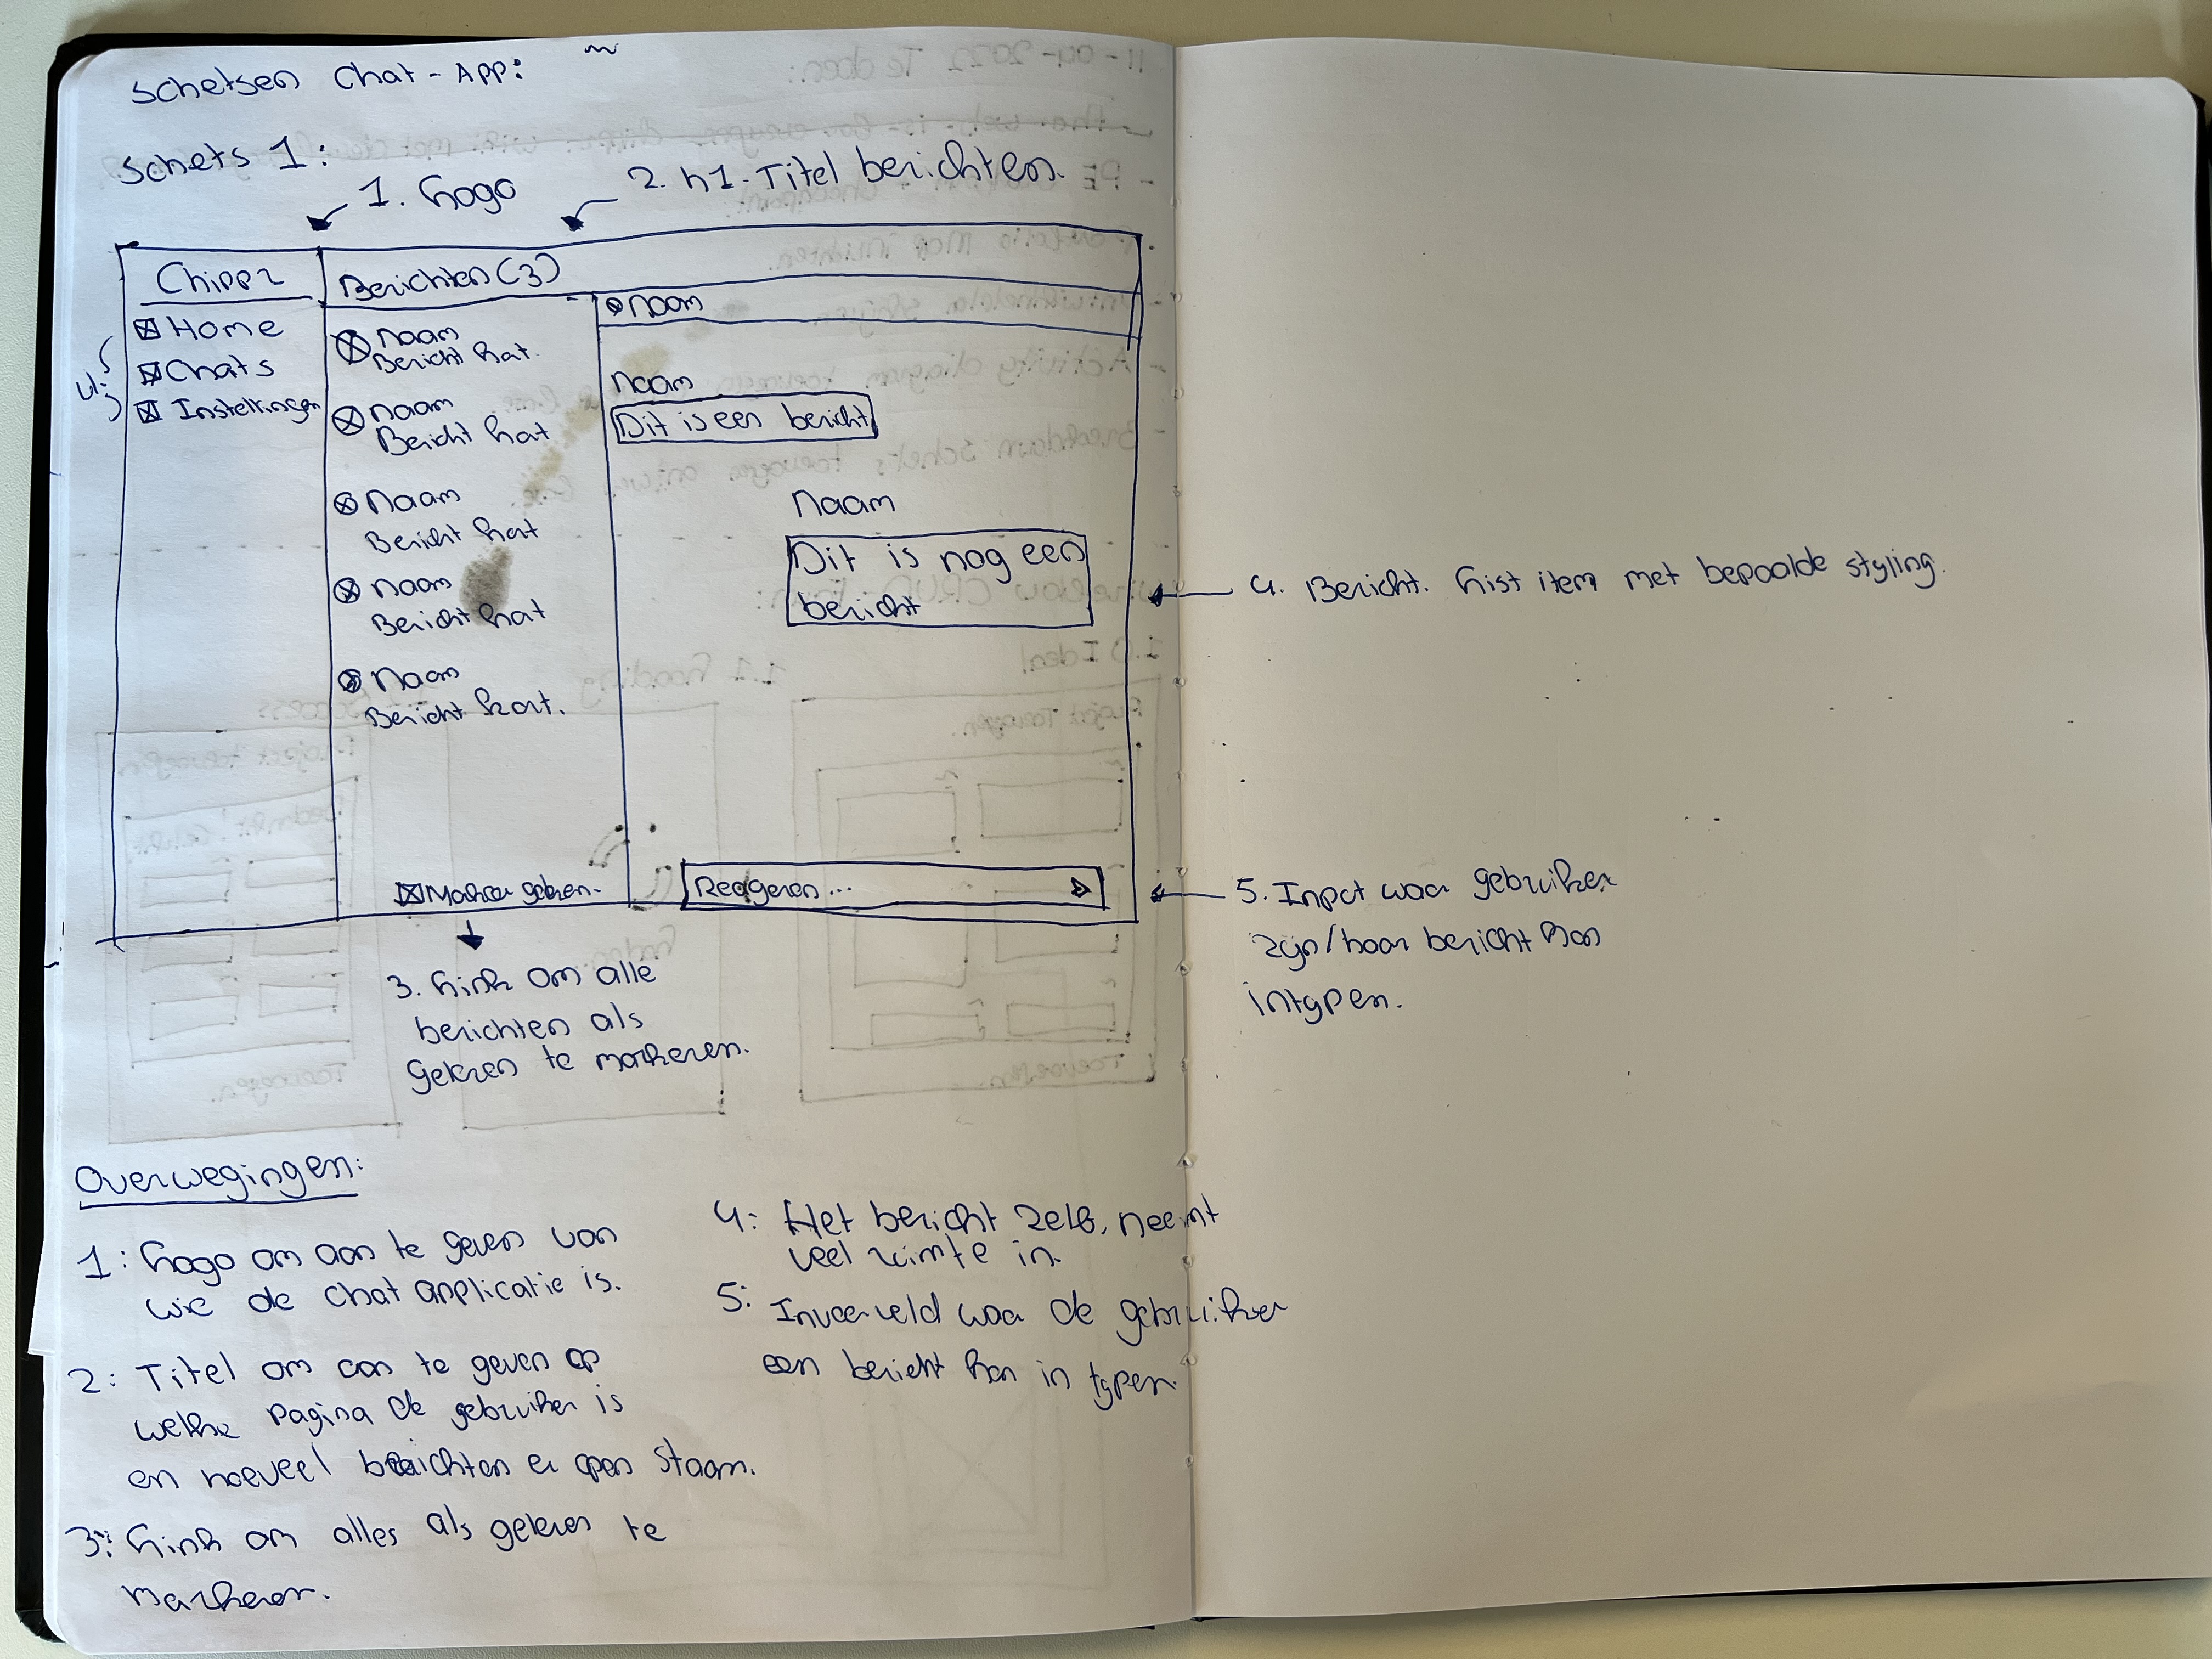 Schetsen Chat-App:
Schets 1:
1. Logo
2. h1-Titel berichten.
Chippr
Home
Chats
Instellingen
Berichten (3)
Naam
Bericht kort.
Naam
Bericht kort
Naam
Bericht kort
Naam
Bericht kort
Naam
Bericht kort.
Markeer gelezen.
Naam
Naam
Dit is een bericht
Naam
Dit is nog een
bericht
Reageren...
3. Link om alle
berichten als
gelezen te markeren.
4. Bericht. List item met bepaalde styling.
5. Input waar gebruiker
zijn/haar bericht kan
intypen.
Overwegingen:
1: Logo om aan te geven van
wie de chat applicatie is.
2: Titel om aan te geven op
welke pagina de gebruiker is
en hoeveel berichten er open staan.
3: Link om alles als gelezen te
markeren.
4: Het bericht zelf, neemt
veel ruimte in.
5: Invoerveld waar de gebruiker
een bericht kan in typen.